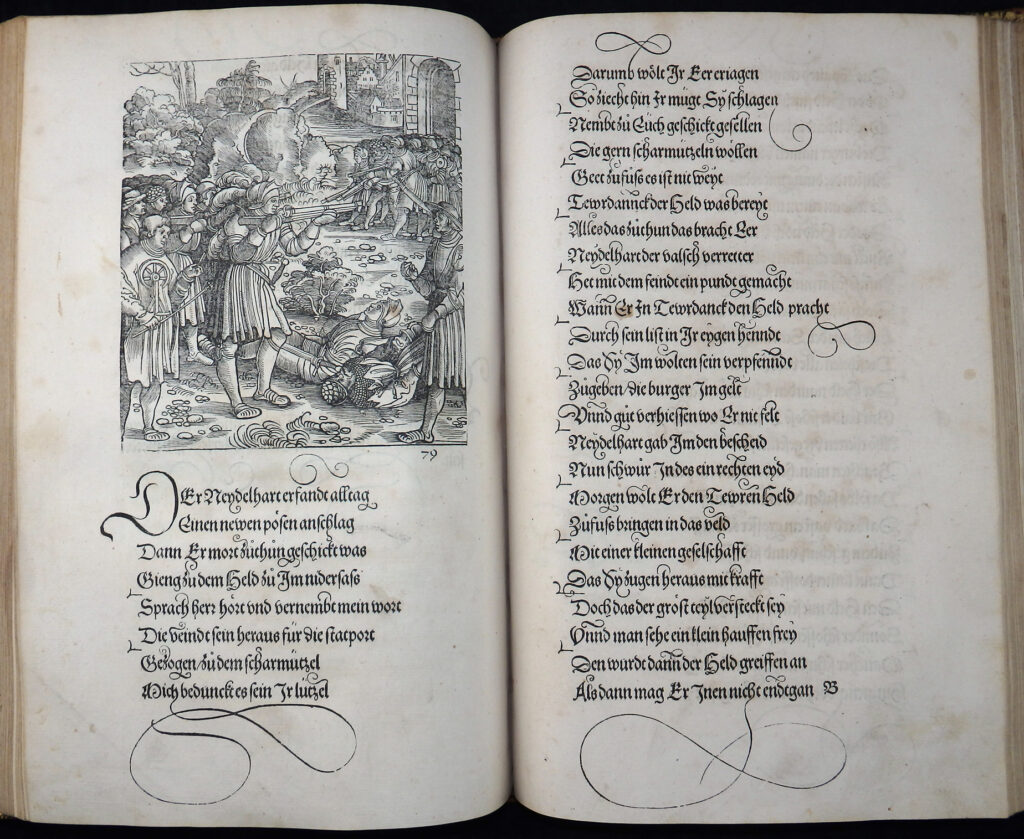 79
DEr Neydelhart erfandt alltag
Einen newen pösen anschlag
Dann Er mort zůthůn geschickt was
Gieng zů dem Held zů Im nidersaß
Sprach herr hört vnd vernembt mein wort
Die veindt sein heraus für die statport
Gezogen/zů dem scharmützel
Mich bedunckt es sein Ir lützel
Darumb wölt Ir Eer eriagen
So ziecht hin Ir müge Sy schlagen
Nembt zů Euch geschickt gesellen
Die gern scharmützeln wöllen
Geet zůfůß es ist nit weyt
Tewrdannck der Held was bereyt
Alles das zůthun das bracht Eer
Neydelhart der valsch verretter
Het mit dem feindt ein pundt gemacht
Wann Er In Tewrdanck den Held pracht
Durch sein list in Ir eygen henndt
Das Sy Im wolten sein verpfenndt
Zůgeben/die burger Im gelt
Vnnd gůt verhiessen wo Er nit felt
Neydelhart gab Im den bescheid
Nun schwůr In des ein rechten eyd
Morgen wölt Er den Tewren Held
Zůfůß bringen in das veld
Mit einer kleinen geselschafft
Das Sy zugen heraus mit krafft
Doch das der gröst teyl versteckt sey
Vnnd man sehe ein klein hauffen frey
Den wurdt dann der Held greiffen an
Als dann mag Er Inen nicht endtgan B